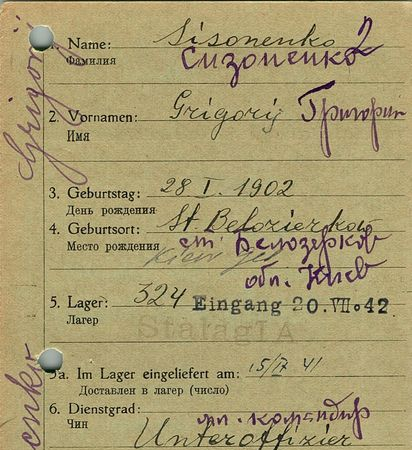 1. Name: Sisonenko 2
Фамилия Сизоненко
2. Vornamen: Grigorij Григорий
Имя
3. Geburtstag: 28 I. 1902
День рождения
4. Geburtsort: St. Belozierkow
Место рождения ст. Белозерков
Kiew Geb
обл. Киев
5. Lager: 324 Eingang 20. VII. 42
Лагерь Stalag IA
5a. Im Lager eingeliefert am: 15/IX 41
Доставлен в лагерь (число)
6. Dienstgrad: мл. командир
Чин Unteroffizier
Grigorij
enko